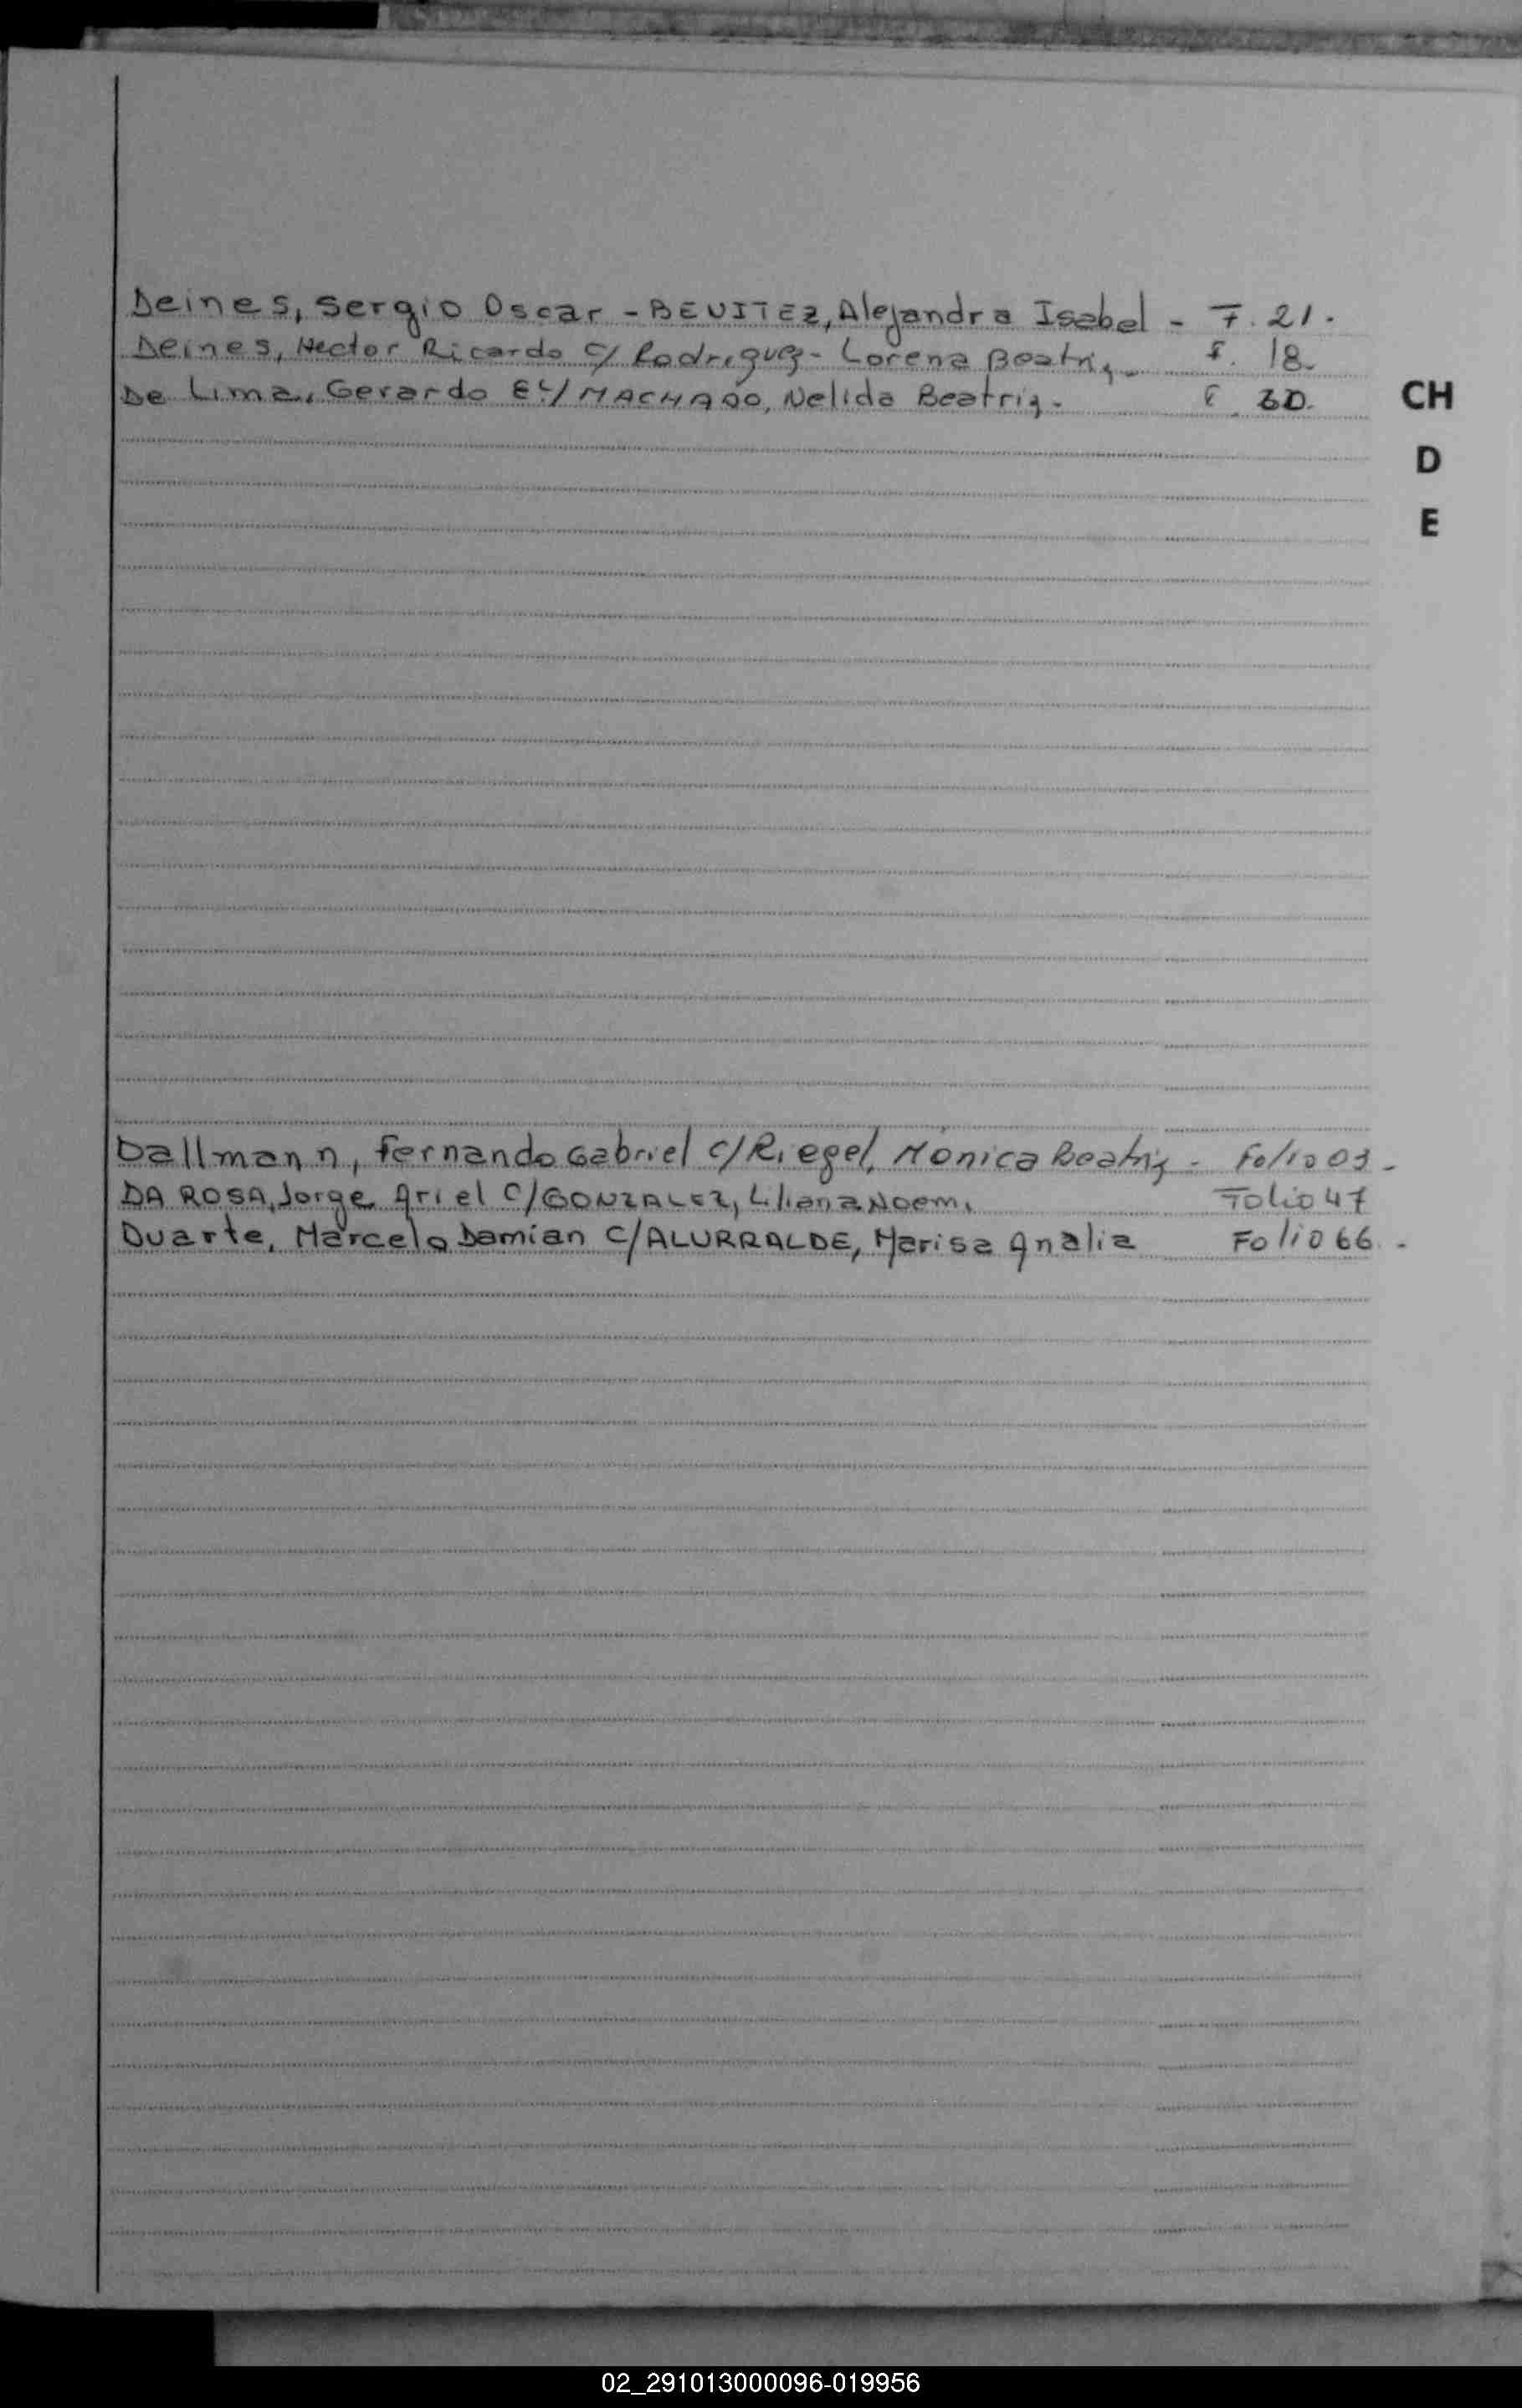 Deines, Sergio Oscar - BENITEZ, Alejandra Isabel - F. 21.
Deines, Hector Ricardo c/ Rodriguez - Lorena Beatriz - F. 18
De Lima, Gerardo C/ MACHADO, Nelida Beatriz - F. 30.
CH
D
E
Dallmann, Fernando Gabriel c/ Riegel, Mónica Beatriz - Folio 03 -
DA ROSA, Jorge Ariel C/ GONZALEZ, Liliana Noemi Folio 47
Duarte, Marcelo Damian C/ ALURRALDE, Marisa Analia Folio 66 -
02_291013000096-019956